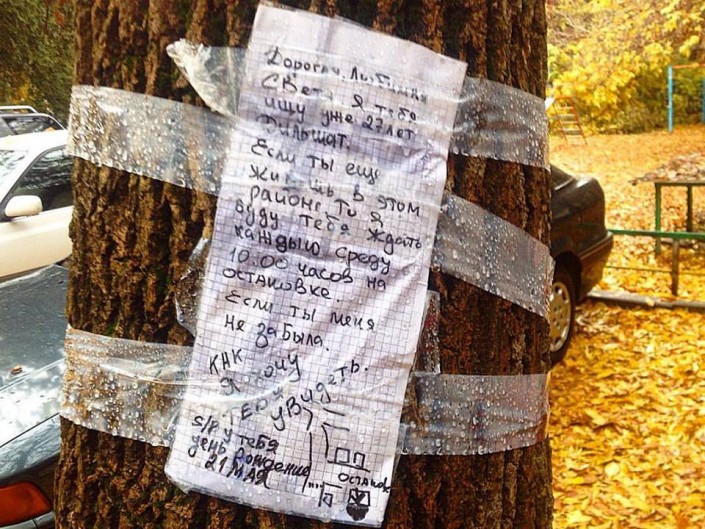 Дорогая, Любимая
Света я тебя
ищу уже 27 лет
Дильшат.
Если ты еще
живешь в этом
районе то я
буду тебя ждать
каждыю среду
10.00 часов на
остановке.
Если ты меня
не забыла.
КНК
Я хочу
тебя
увидеть.
S/P у тебя
день рождения
21 мая
останов